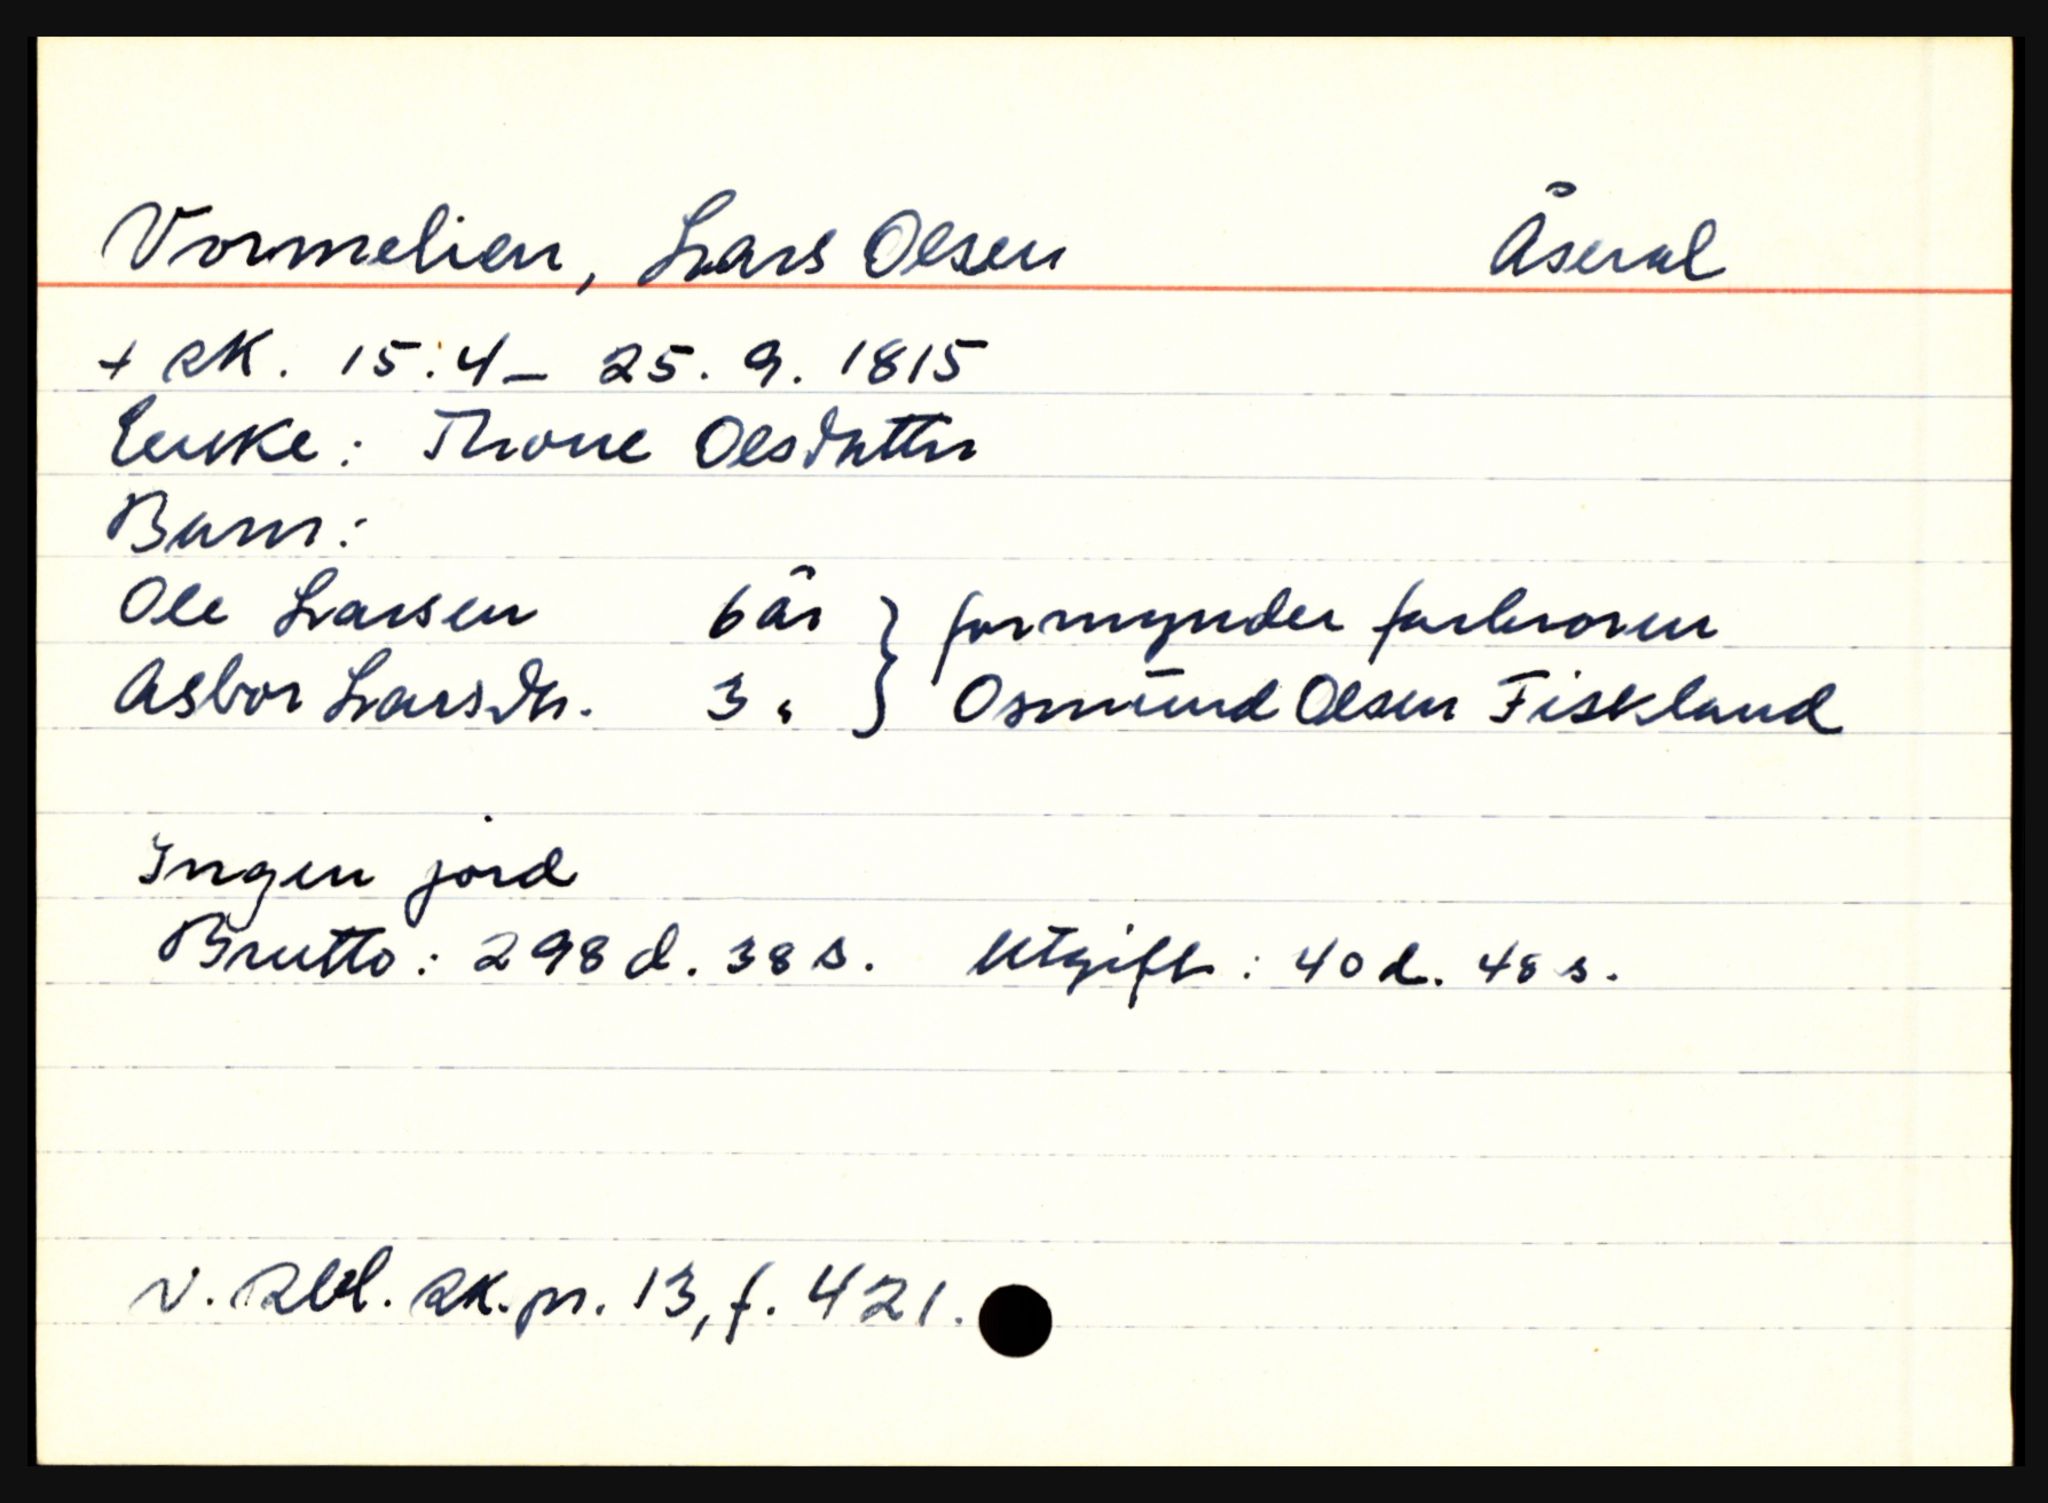 Vormelien, Lars Olsen Åseral
+ sk. 15.4 – 25.9.1815
Enke: Throne Olsdatter
Barn:
Ole Larsen 6 år } formynder farbroren
Asbor Larsdtr. 3 " } Osmund Olsen Fiskland
Ingen jord
Brutto: 298 d. 38 s. Utgift: 40 d. 48 s.
V. Rbd. sk. pr. 13, f. 421.